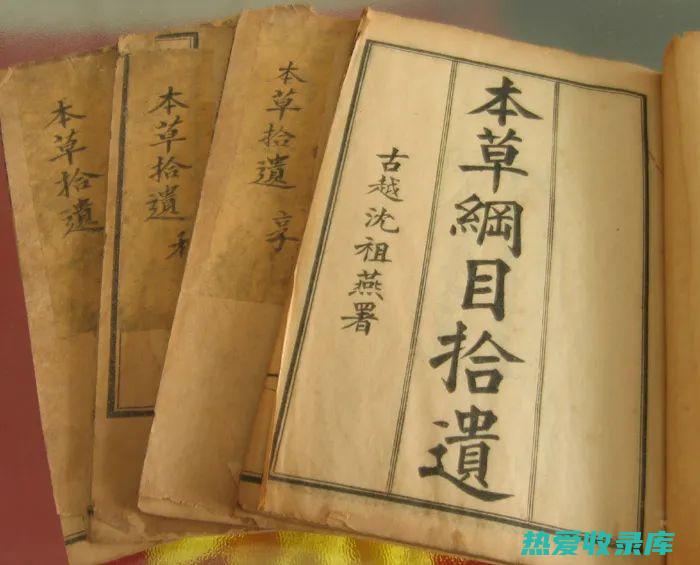 本草綱目拾遺
古越沈祖燕署
本草拾遺 亨
本草拾遺 利
本草拾遺
热爱收录库